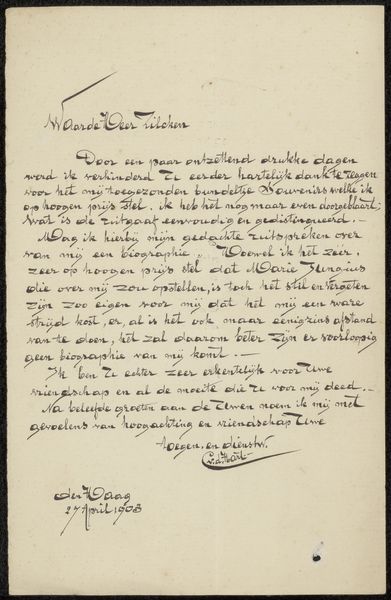 Waarde Heer Zilcken
Door een paar ontzettend drukke dagen
werd ik verhinderd U eerder hartelijk dank te zeggen
voor het mij toegezonden bundeltje Souvenirs welke ik
op hoogen prijs stel. Ik heb het nog maar even doorgeblaart;
Wat is de uitgaaf eenvoudig en gedistingueerd.
Mag ik hierbij mijn gedachte uitspreken over
van mij een biographie. Hoewel ik het zéér,
zeer op hoogen prijs stel dat Marie Jungius
die over mij zou opstellen, is toch het stil en vergeten
zijn zoo eigen voor mij dat het mij een ware
strijd kost, er, al is het ook maar eenigzins afstand
van te doen, het zal daarom beter zijn er voorloopig
geen biographie van mij komt.
Ik ben U echter zeer erkentelijk voor Uwe
vriendschap en al de moeite die U voor mij deed.
Na beleefde groeten aan de Uwen noem ik mij met
gevoelens van hoogachting en vriendschap Uwe
toegen. en dienstw.
den Haag
27 April 1903